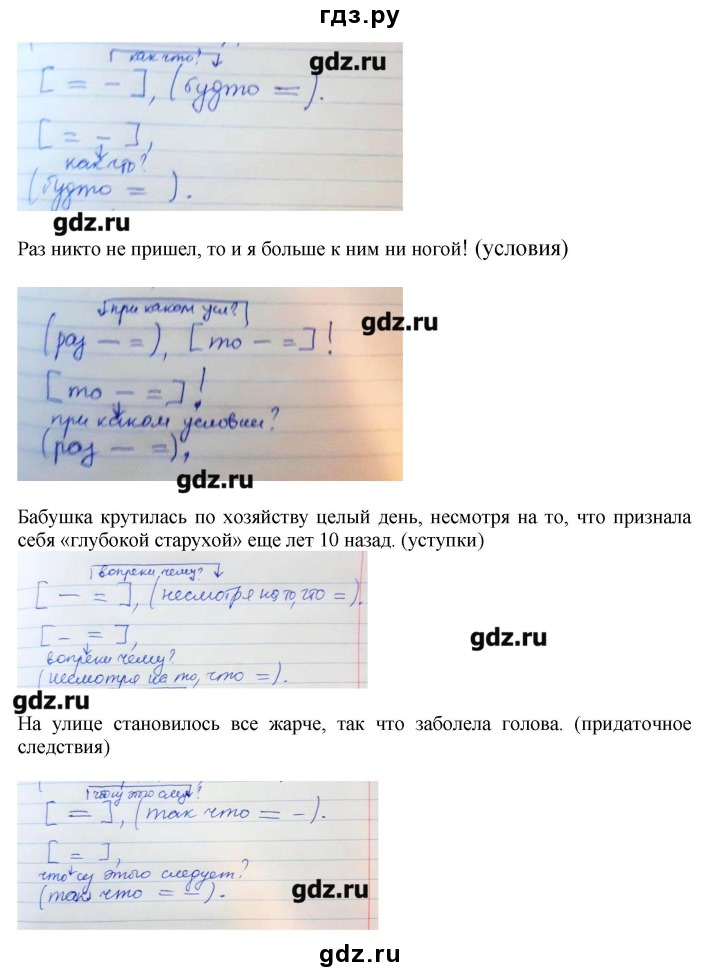 гдз.ру
как что?
gdz.ru
[ = – ], (будто = ).
[ = – ],
как что?
(будто = ).
gdz.ru
Раз никто не пришел, то и я больше к ним ни ногой! (условия)
при каком усл?
gdz.ru
(раз – = ), [ то – = ]!
[ то – = ]!
при каком условии?
(раз – = ),
gdz.ru
Бабушка крутилась по хозяйству целый день, несмотря на то, что признала
себя «глубокой старухой» еще лет 10 назад. (уступки)
вопреки чему?
[ – = ], (несмотря на то, что = ).
gdz.ru
[ – = ],
вопреки чему?
(несмотря на то, что = ).
gdz.ru
На улице становилось все жарче, так что заболела голова. (придаточное
следствия)
что из этого след?
[ = ], (так что = – ).
[ = ],
что из этого следует?
(так что = – ).
gdz.ru
gdz.ru